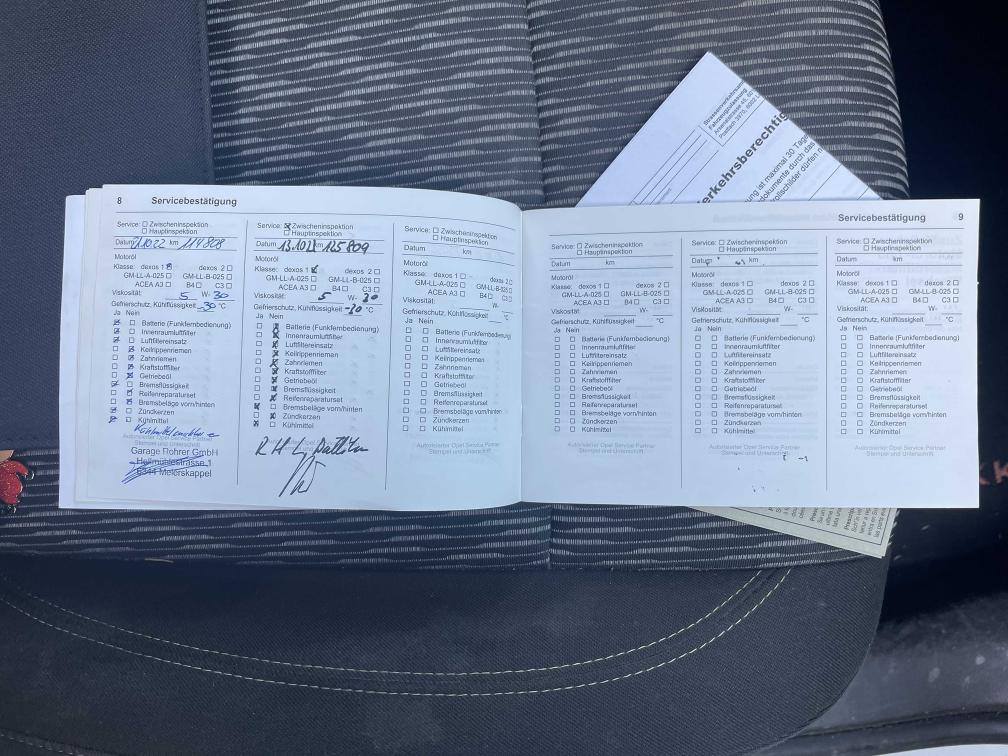 8 Servicebestätigung
Service: Zwischeninspektion
Hauptinspektion
Datum km 114808
Motoröl
Klasse: dexos 1 dexos 2
GM-LL-A-025 GM-LL-B-025
ACEA A3 B4 C3
Viskosität: 5 W- 30
Gefrierschutz, Kühlflüssigkeit -30 °C
Ja Nein
Batterie (Funkfernbedienung)
Innenraumluftfilter
Luftfiltereinsatz
Keilrippenriemen
Zahnriemen
Kraftstofffilter
Getriebeöl
Bremsflüssigkeit
Reifenreparaturset
Bremsbeläge vorn/hinten
Zündkerzen
Kühlmittel
Autorisierter Opel Service Partner
Stempel und Unterschrift
Garage Rohrer GmbH
6344 Meierskappel
Service: Zwischeninspektion
Hauptinspektion
Datum km 125809
Motoröl
Klasse: dexos 1 dexos 2
GM-LL-A-025 GM-LL-B-025
ACEA A3 B4 C3
Viskosität: 5 W- 30
Gefrierschutz, Kühlflüssigkeit -30 °C
Ja Nein
Batterie (Funkfernbedienung)
Innenraumluftfilter
Luftfiltereinsatz
Keilrippenriemen
Zahnriemen
Kraftstofffilter
Getriebeöl
Bremsflüssigkeit
Reifenreparaturset
Bremsbeläge vorn/hinten
Zündkerzen
Kühlmittel
Service: Zwischeninspektion
Hauptinspektion
Datum km
Motoröl
Klasse: dexos 1 dexos 2
GM-LL-A-025 GM-LL-B-025
ACEA A3 B4 C3
Viskosität: W-
Gefrierschutz, Kühlflüssigkeit °C
Ja Nein
Batterie (Funkfernbedienung)
Innenraumluftfilter
Luftfiltereinsatz
Keilrippenriemen
Zahnriemen
Kraftstofffilter
Getriebeöl
Bremsflüssigkeit
Reifenreparaturset
Bremsbeläge vorn/hinten
Zündkerzen
Kühlmittel
Autorisierter Opel Service Partner
Stempel und Unterschrift
Servicebestätigung 9
Service: Zwischeninspektion
Hauptinspektion
Datum km
Motoröl
Klasse: dexos 1 dexos 2
GM-LL-A-025 GM-LL-B-025
ACEA A3 B4 C3
Viskosität: W-
Gefrierschutz, Kühlflüssigkeit °C
Ja Nein
Batterie (Funkfernbedienung)
Innenraumluftfilter
Luftfiltereinsatz
Keilrippenriemen
Zahnriemen
Kraftstofffilter
Getriebeöl
Bremsflüssigkeit
Reifenreparaturset
Bremsbeläge vorn/hinten
Zündkerzen
Kühlmittel
Autorisierter Opel Service Partner
Stempel und Unterschrift
Service: Zwischeninspektion
Hauptinspektion
Datum km
Motoröl
Klasse: dexos 1 dexos 2
GM-LL-A-025 GM-LL-B-025
ACEA A3 B4 C3
Viskosität: W-
Gefrierschutz, Kühlflüssigkeit °C
Ja Nein
Batterie (Funkfernbedienung)
Innenraumluftfilter
Luftfiltereinsatz
Keilrippenriemen
Zahnriemen
Kraftstofffilter
Getriebeöl
Bremsflüssigkeit
Reifenreparaturset
Bremsbeläge vorn/hinten
Zündkerzen
Kühlmittel
Autorisierter Opel Service Partner
Stempel und Unterschrift
Service: Zwischeninspektion
Hauptinspektion
Datum km
Motoröl
Klasse: dexos 1 dexos 2
GM-LL-A-025 GM-LL-B-025
ACEA A3 B4 C3
Viskosität: W-
Gefrierschutz, Kühlflüssigkeit °C
Ja Nein
Batterie (Funkfernbedienung)
Innenraumluftfilter
Luftfiltereinsatz
Keilrippenriemen
Zahnriemen
Kraftstofffilter
Getriebeöl
Bremsflüssigkeit
Reifenreparaturset
Bremsbeläge vorn/hinten
Zündkerzen
Kühlmittel
Autorisierter Opel Service Partner
Stempel und Unterschrift
Strassenverkehrsam
Fahrzeugzulassung
erkehrsberechtig
ung ist maximal 30 Tage
dokumente durch das
trollschilder dürfen n